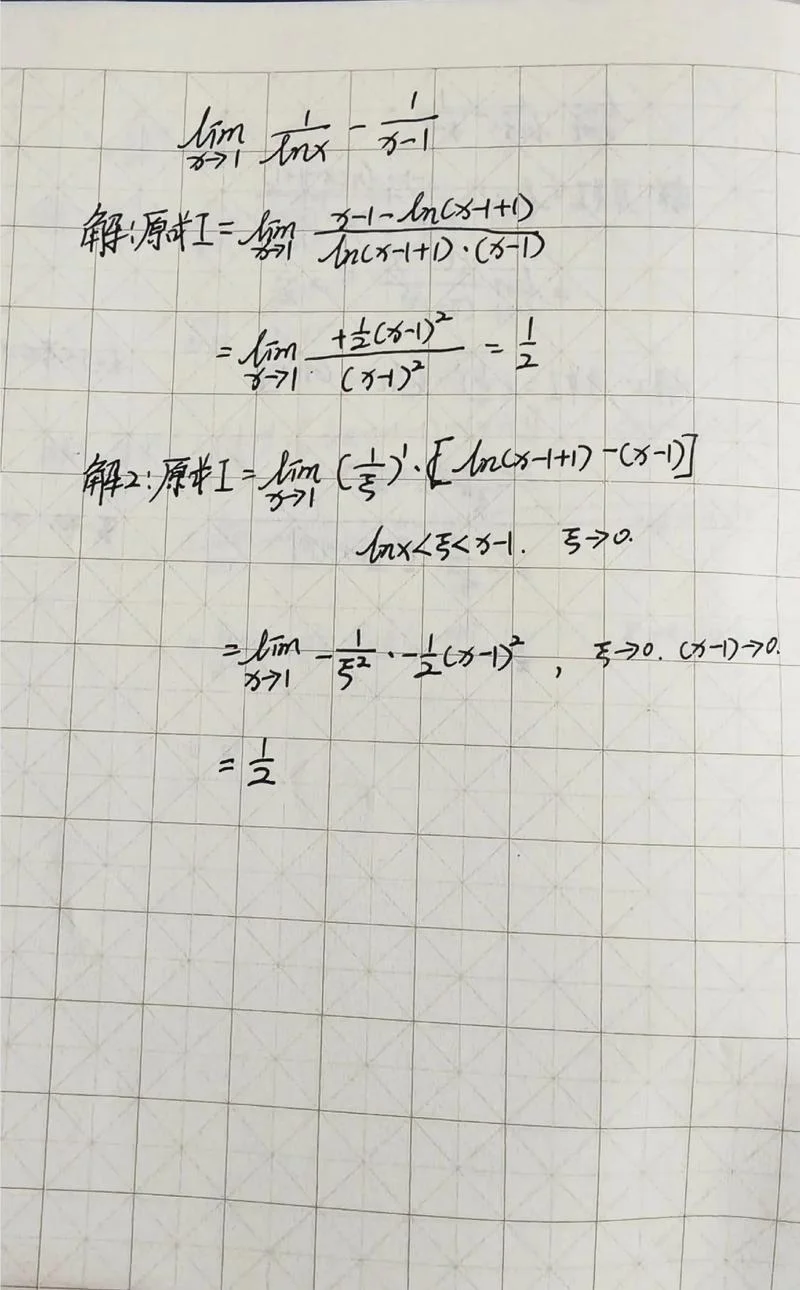 lim x→1 1/lnx - 1/(x-1)
解:原式I = lim x→1 (x-1-ln(x-1+1))/(ln(x-1+1)·(x-1))
= lim x→1 (+1/2(x-1)²)/((x-1)²) = 1/2
解2:原式I = lim x→1 (1/ξ)'·[ln(x-1+1)-(x-1)]
lnx<ξ<x-1. ξ→0.
= lim x→1 -1/ξ² · -1/2(x-1)², ξ→0. (x-1)→0.
= 1/2